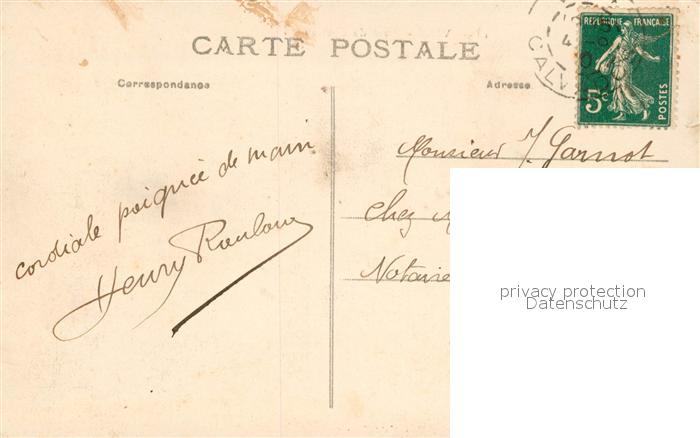 CARTE POSTALE
Correspondance
Adresse
REPUBLIQUE FRANÇAISE
5c
POSTES
CALV
cordiale poignée de main
Henry
Monsieur J. Garnot
Chez
Notaire
privacy protection
Datenschutz